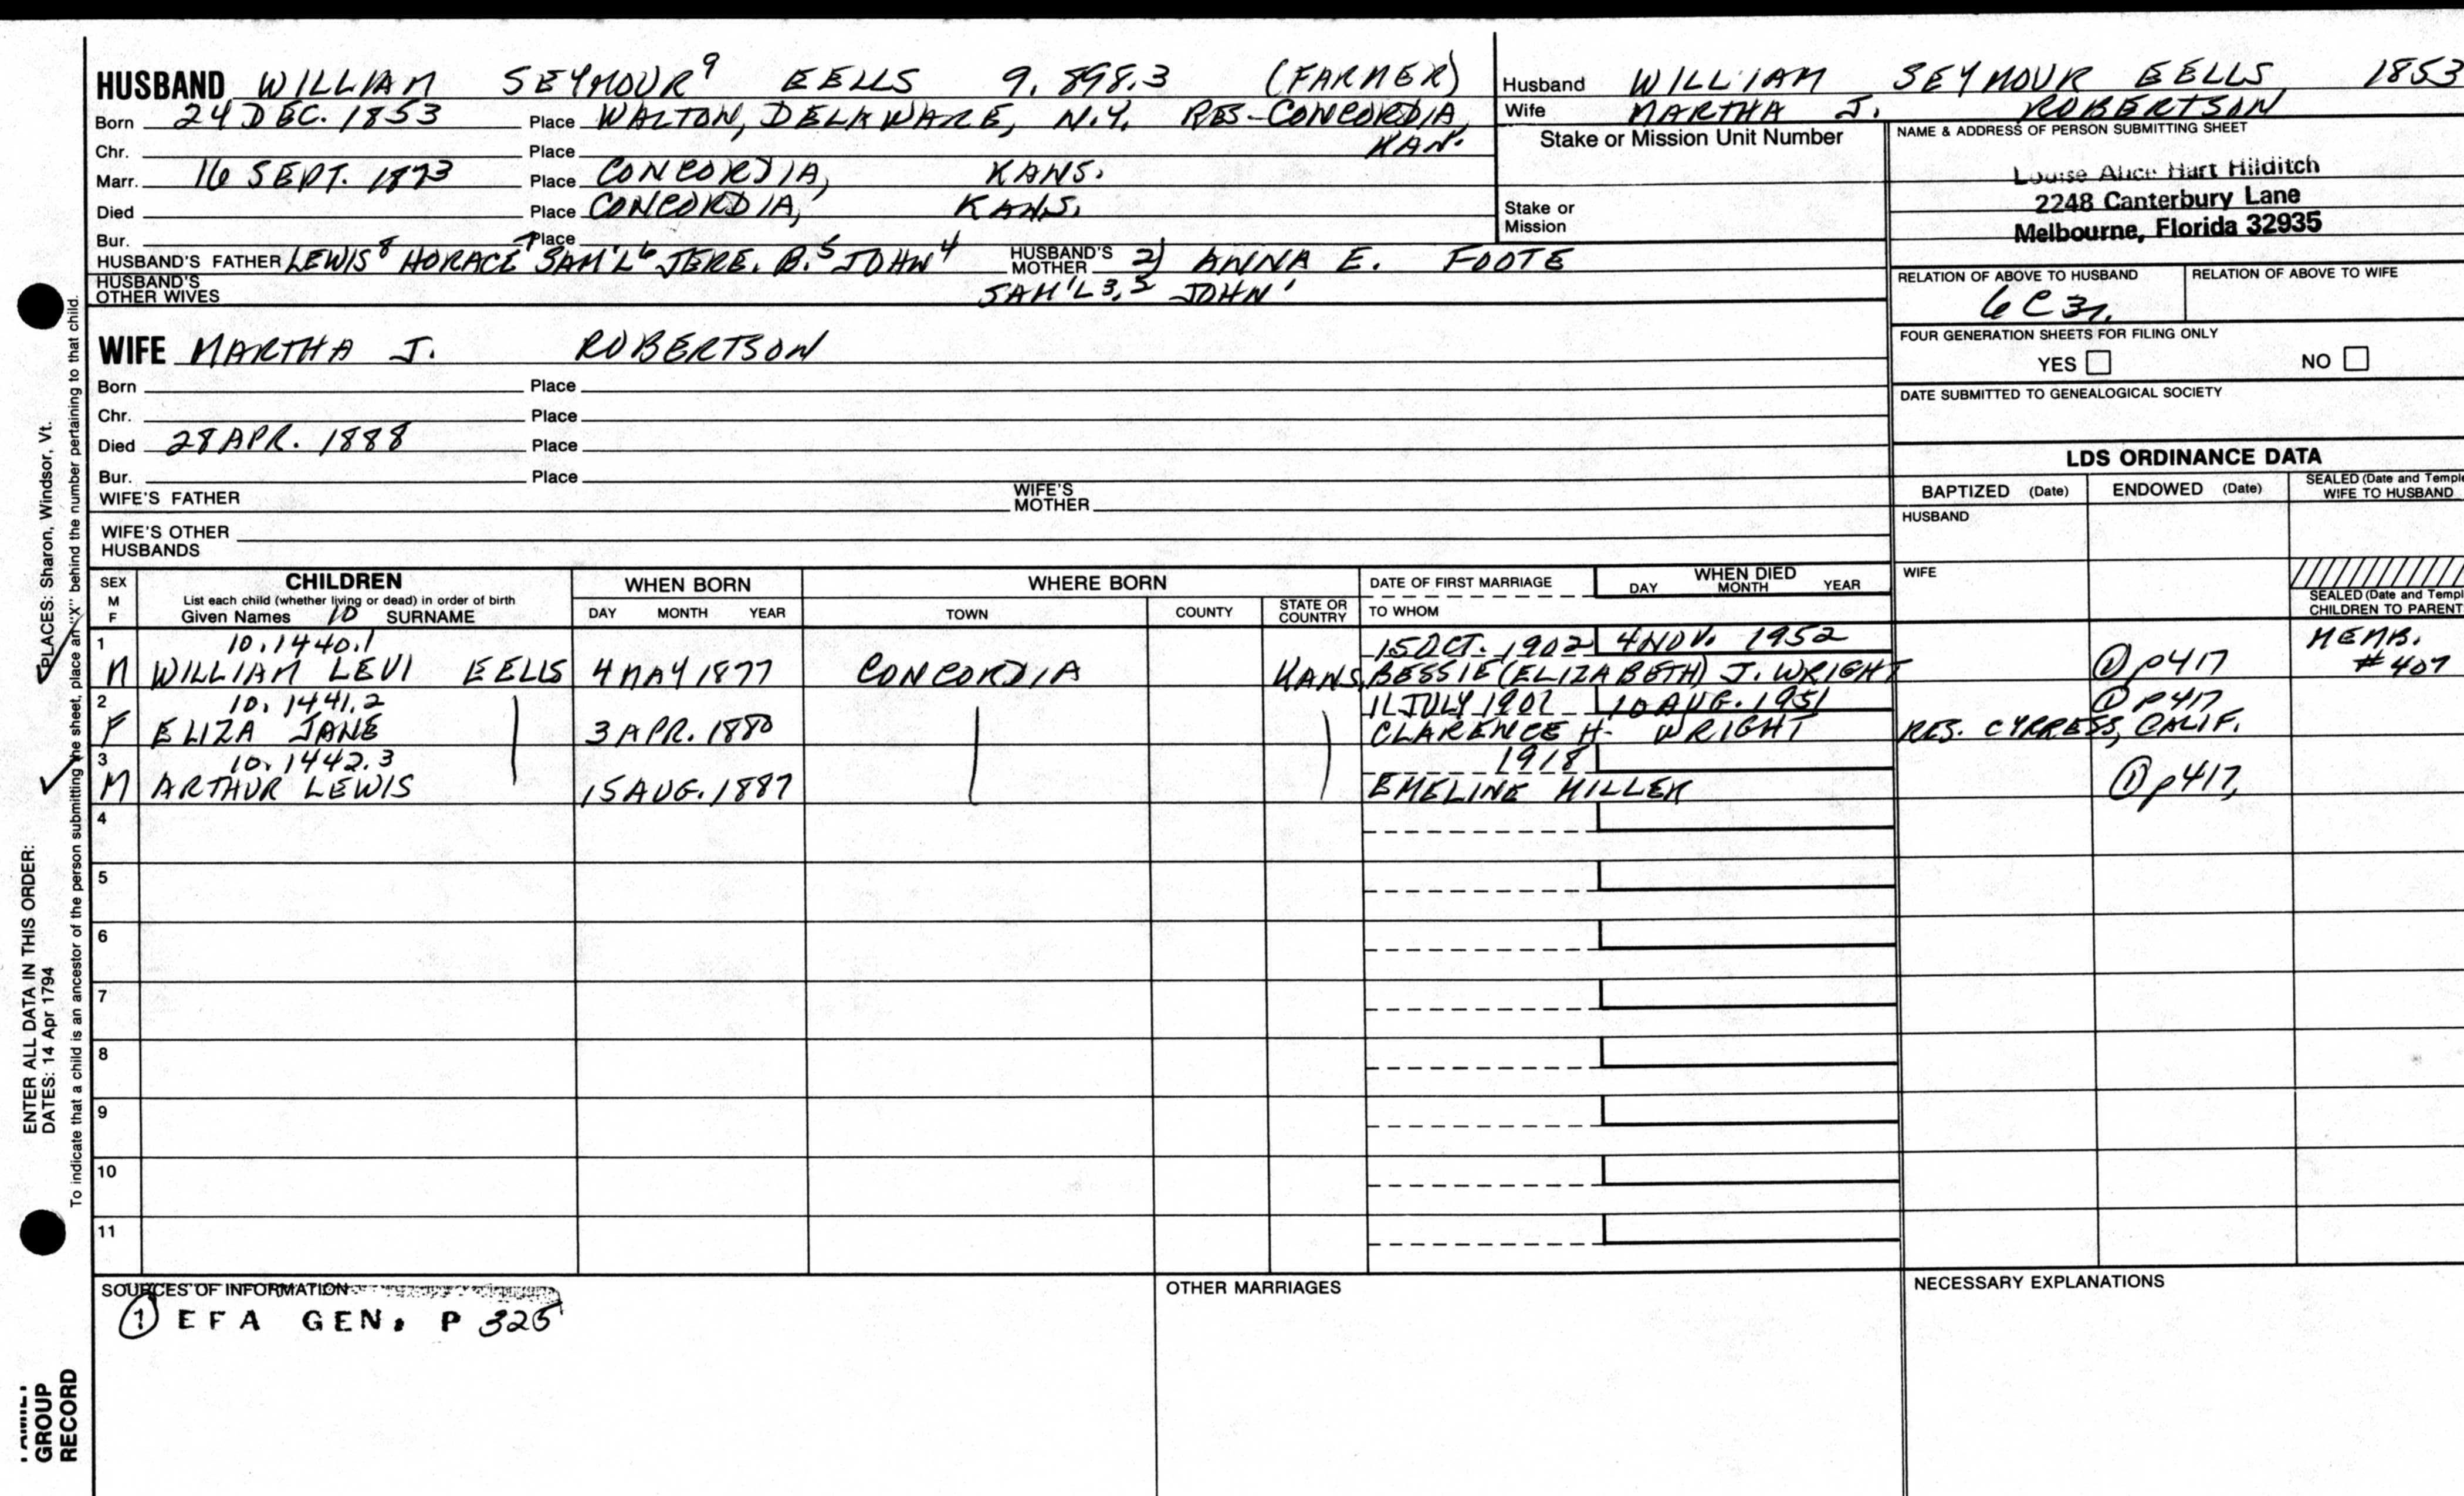 HUSBAND WILLIAM SEYMOUR⁹ EELLS 9.898.3 (FARMER)
Born 24 DEC. 1853 Place WALTON, DELAWARE, N.Y. RES-CONCORDIA,
Chr. Place KAN.
Marr. 16 SEPT. 1873 Place CONCORDIA, KANS.
Died Place CONCORDIA, KANS.
Bur. Place
HUSBAND'S FATHER LEWIS⁸ HORACE⁷ SAM'L⁶ JERE. B.⁵ JOHN⁴ HUSBAND'S MOTHER 2) ANNA E. FOOTE
HUSBAND'S OTHER WIVES SAM'L 3,2 JOHN'
WIFE MARTHA J. ROBERTSON
Born Place
Chr. Place
Died 28 APR. 1888 Place
Bur. Place
WIFE'S FATHER WIFE'S MOTHER
WIFE'S OTHER HUSBANDS
Husband WILLIAM SEYMOUR EELLS 1853
Wife MARTHA J. ROBERTSON
Stake or Mission Unit Number
Stake or Mission
NAME & ADDRESS OF PERSON SUBMITTING SHEET
Louise Alice Hart Hilditch
2248 Canterbury Lane
Melbourne, Florida 32935
RELATION OF ABOVE TO HUSBAND RELATION OF ABOVE TO WIFE
6C3r.
FOUR GENERATION SHEETS FOR FILING ONLY
YES NO
DATE SUBMITTED TO GENEALOGICAL SOCIETY
LDS ORDINANCE DATA
BAPTIZED (Date) ENDOWED (Date) SEALED (Date and Temple WIFE TO HUSBAND
HUSBAND
WIFE
SEALED (Date and Templ CHILDREN TO PARENT
SEX M F
CHILDREN
List each child (whether living or dead) in order of birth
Given Names 10 SURNAME
WHEN BORN
DAY MONTH YEAR
WHERE BORN
TOWN COUNTY STATE OR COUNTRY
DATE OF FIRST MARRIAGE
TO WHOM
WHEN DIED
DAY MONTH YEAR
1 10.1440.1 15 OCT. 1902 4 NOV. 1952 MEMB.
M WILLIAM LEVI EELLS 4 MAY 1877 CONCORDIA KANS. BESSIE (ELIZABETH) J. WRIGHT ① p417 #407
2 10.1441.2 11 JULY 1902 10 AUG. 1951 ① p417
F ELIZA JANE 3 APR. 1880 CLARENCE H. WRIGHT RES. CYPRESS, CALIF.
3 10.1442.3 1918
M ARTHUR LEWIS 15 AUG. 1887 EMELINE MILLER ① p417,
4
5
6
7
8
9
10
11
SOURCES OF INFORMATION
① EFA GEN. P 325
OTHER MARRIAGES
NECESSARY EXPLANATIONS
ENTER ALL DATA IN THIS ORDER:
DATES: 14 Apr 1794 PLACES: Sharon, Windsor, Vt.
To indicate that a child is an ancestor of the person submitting the sheet, place an "X" behind the number pertaining to that child.
FAMILY
GROUP
RECORD